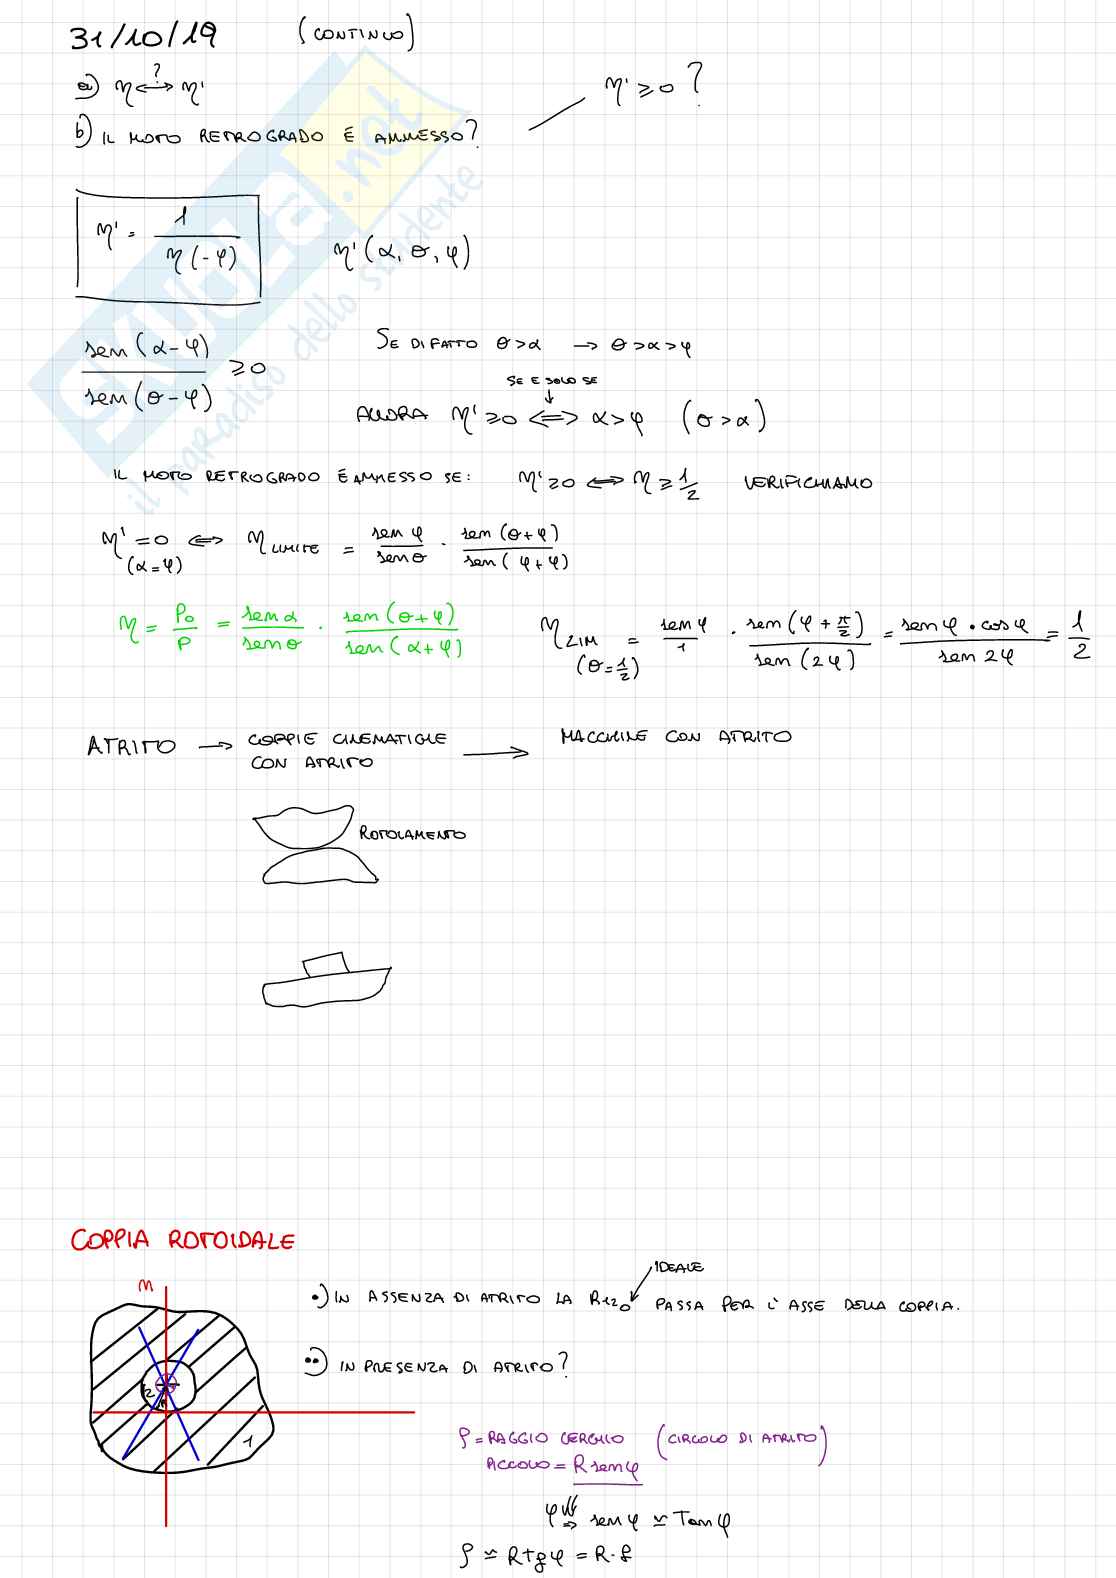 31/10/19 (CONTINUO)
a) η <-?-> η'
η' ≥ 0 ?
b) IL MOTO RETROGRADO È AMMESSO?
η' = 1 / η(-φ)
η'(α, θ, φ)
sen(α-φ) / sen(θ-φ) ≥ 0
SE DI FATTO θ>α → θ>α>φ
SE E SOLO SE
ALLORA η' ≥ 0 ⟺ α>φ (θ>α)
IL MOTO RETROGRADO È AMMESSO SE: η' ≥ 0 ⟺ η ≥ 1/2 VERIFICHIAMO
η' = 0 ⟺ η LIMITE = sen φ / sen θ · sen(θ+φ) / sen(φ+φ)
(α=φ)
η = P₀/P = sen α / sen θ · sen(θ+φ) / sen(α+φ)
η LIM = sen φ / 1 · sen(φ + π/2) / sen(2φ) = sen φ · cos φ / sen 2φ = 1/2
(θ = 1/2)
ATRITO → COPPIE CINEMATICHE CON ATRITO → MACCHINE CON ATRITO
ROTOLAMENTO
COPPIA ROTOIDALE
M
2
1
IDEALE
•) IN ASSENZA DI ATRITO LA R₁₂₀ PASSA PER L'ASSE DELLA COPPIA.
••) IN PRESENZA DI ATRITO?
ρ = RAGGIO CERCHIO (CIRCOLO DI ATRITO)
ACCOLO = R sen φ
φ ⇓ ⇒ sen φ ≃ Tan φ
ρ ≃ R tg φ = R · f
SKUOLA.net
il paradiso dello studente